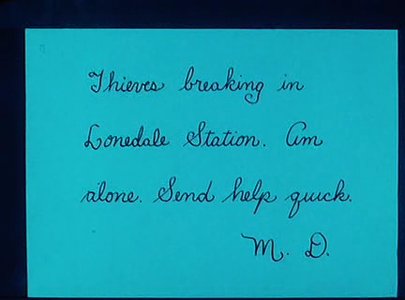 Thieves breaking in
Lonedale Station. Am
alone. Send help quick.
M. D.